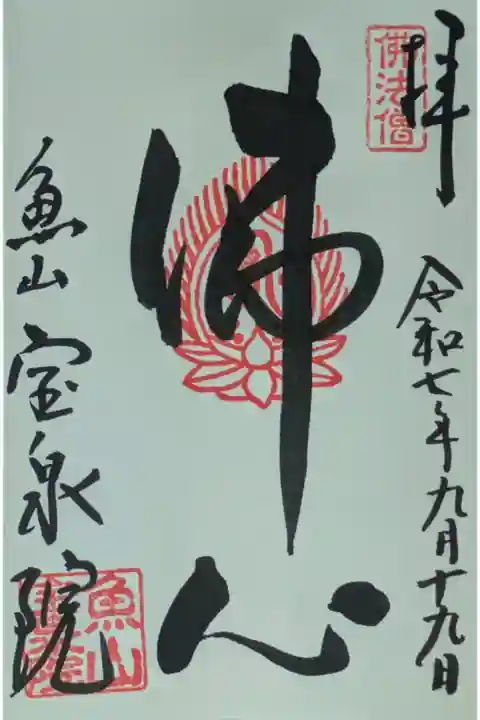 拝
佛法僧
令和七年九月十九日
佛心
魚山宝泉院
魚山